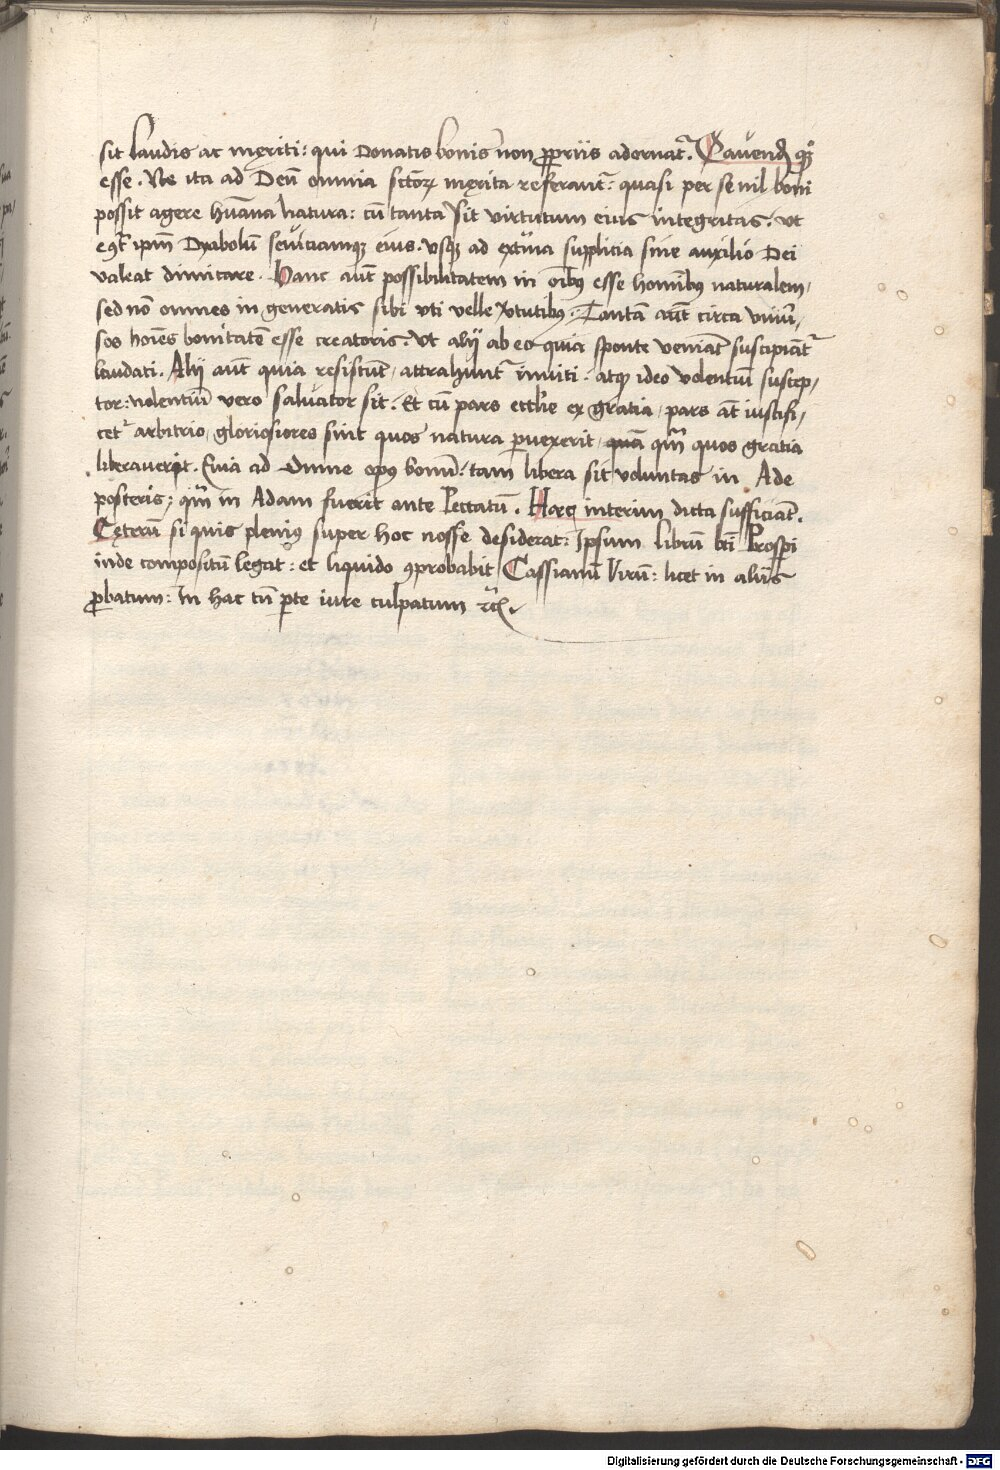 sit laudis ac meriti: qui Donatis bonis non ꝓpriis adornat᷑. Cauendū qꝫ
esse. Ne ita ad Deū omnia sctōꝝ męrita referant᷑: quasi per se nil boni
possit agere hūana natura: cū tanta sit virtutum eius integritas. Vt
ꝯt᷑ ipm̄ Dyabolū seuiciamqꝫ eius. Vsqꝫ ad extīa supplicia sine auxilio Dei
valeat dimicare. Hanc aūt possibilitatem in oībꝰ esse homībꝰ naturalem,
sed nō omnes in generatis sibi vti velle v̄tutibꝰ. Tantā aūt circa vniū,
sos hoīes bonitatē esse creatoris. Vt alij ab eo quia sponte veniāt suscipiāt᷑
laudati. Alij aūt quia resistūt, attrahunt᷑ inuiti. atqꝫ ideo volentiū suscep,
tor: nolentiū vero saluator sit. Et cū pars eccl̄ie ex gratia, pars āt iustifi,
cet᷑ arbitrio, gloriosiores sint quos natura ꝓuexerit, quā qm̄ quos gratia
liberauerit. Quia ad Omne opꝰ bonū: tam libera sit voluntas in Ade
posteris; qm̄ in Adam fuerit ante Peccatū. Haec interim dicta sufficiāt.
Cęterū si quis pleniꝰ super hoc nosse desiderat: Ipsum librū bt̄i Prosꝑi
inde compositū legat: et liquido ꝯprobabit Cassianū Virū: licet in aliis
ꝓbatum: In hac tn̄ ꝑte iure culpatum rc̄.
Digitalisierung gefördert durch die Deutsche Forschungsgemeinschaft - DFG